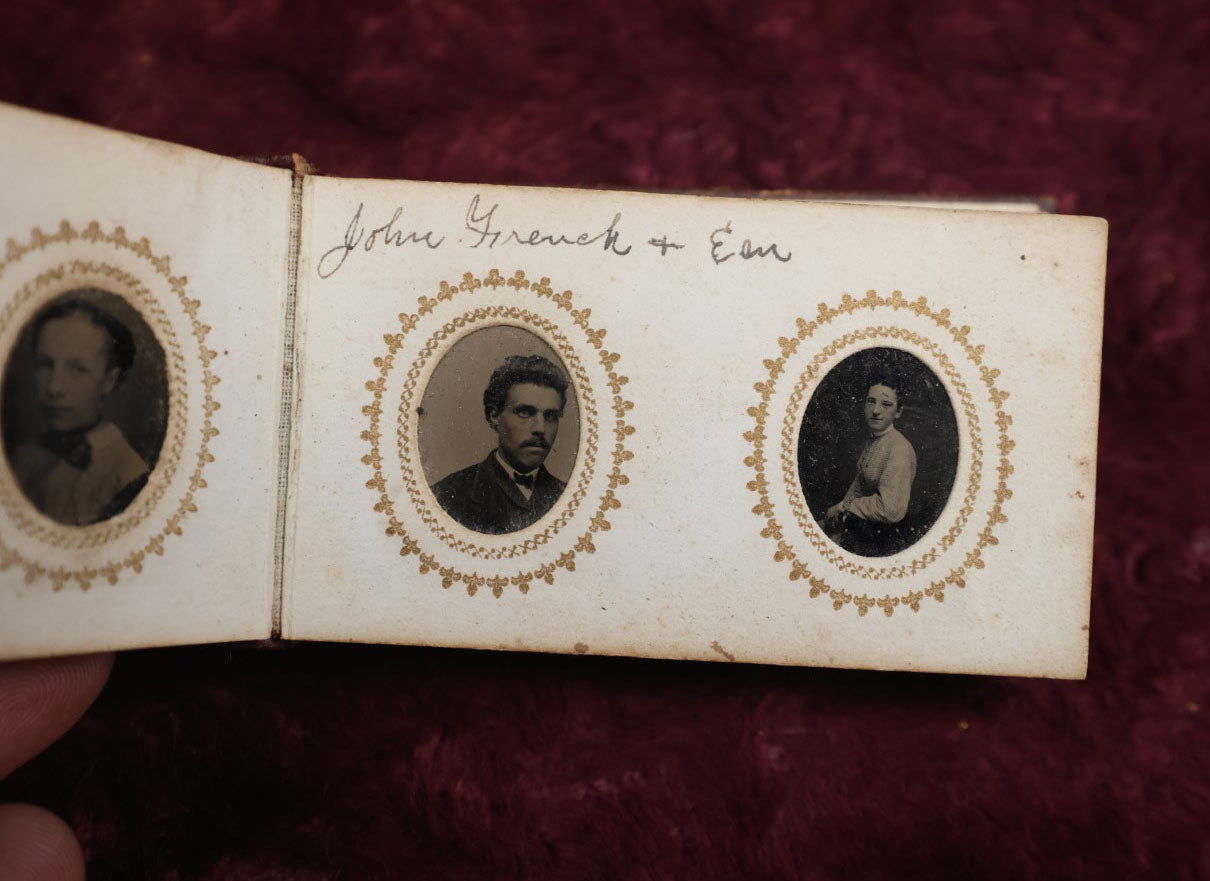 John French + Em